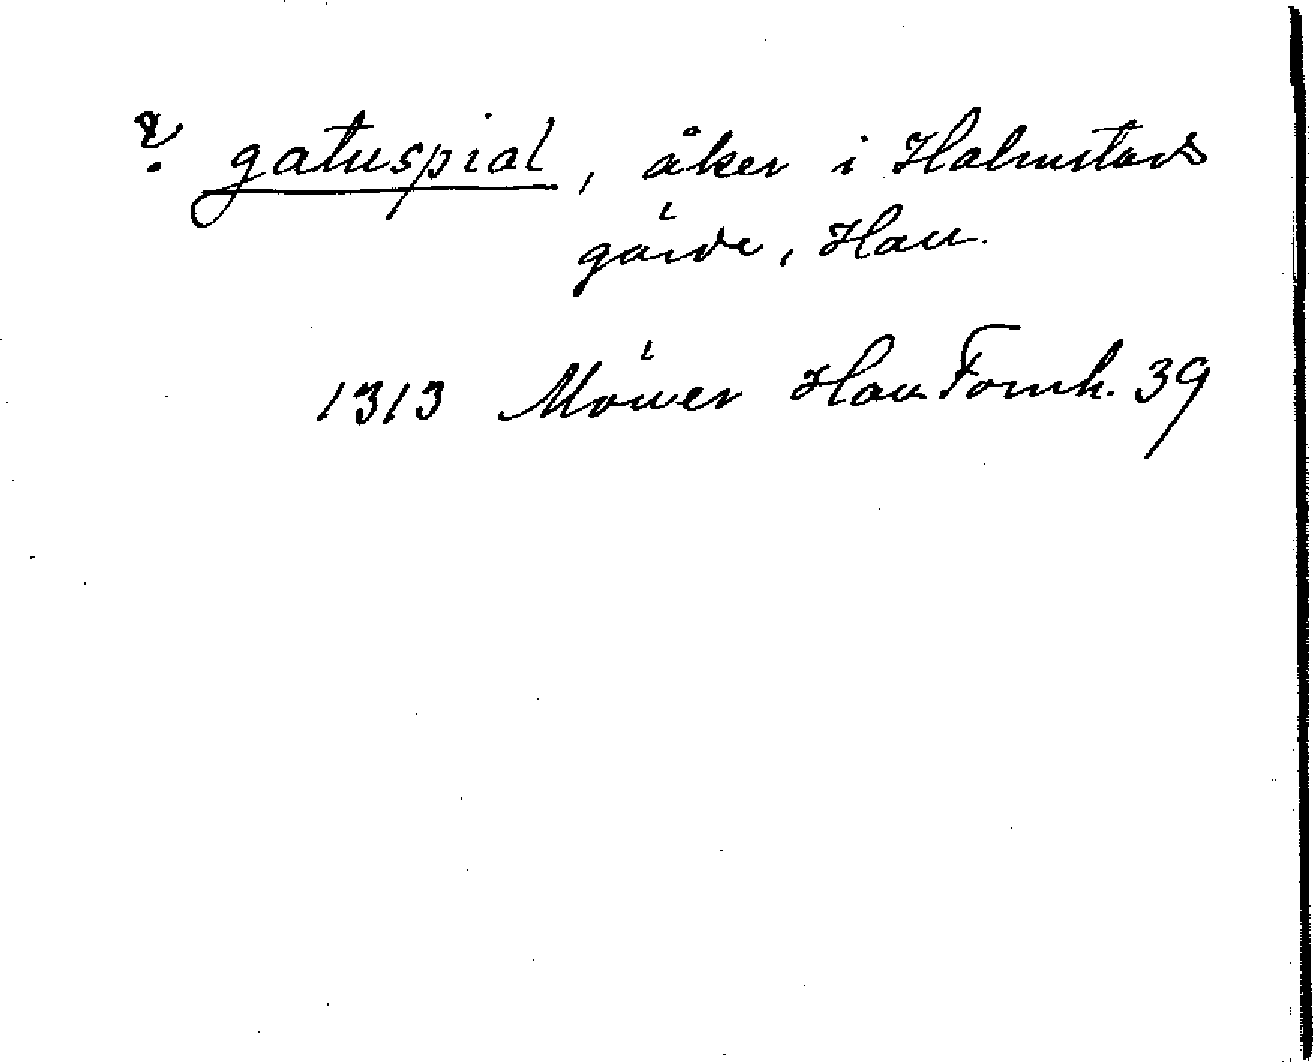 ? gatuspial, åker i Halmstads
gärde, Hall.
1313 Möller Hall Fornh. 39